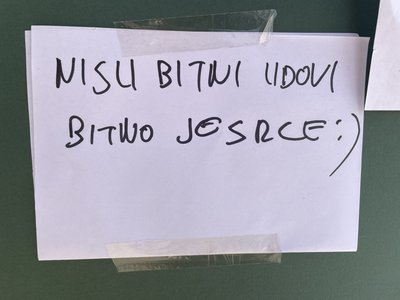 NISU BITNI UDOVI
BITNO JE SRCE :)